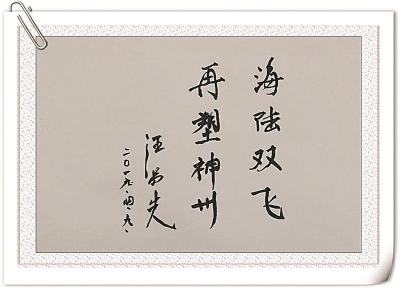 海陆双飞
再塑神州
汪品先
二〇一九·四·九·